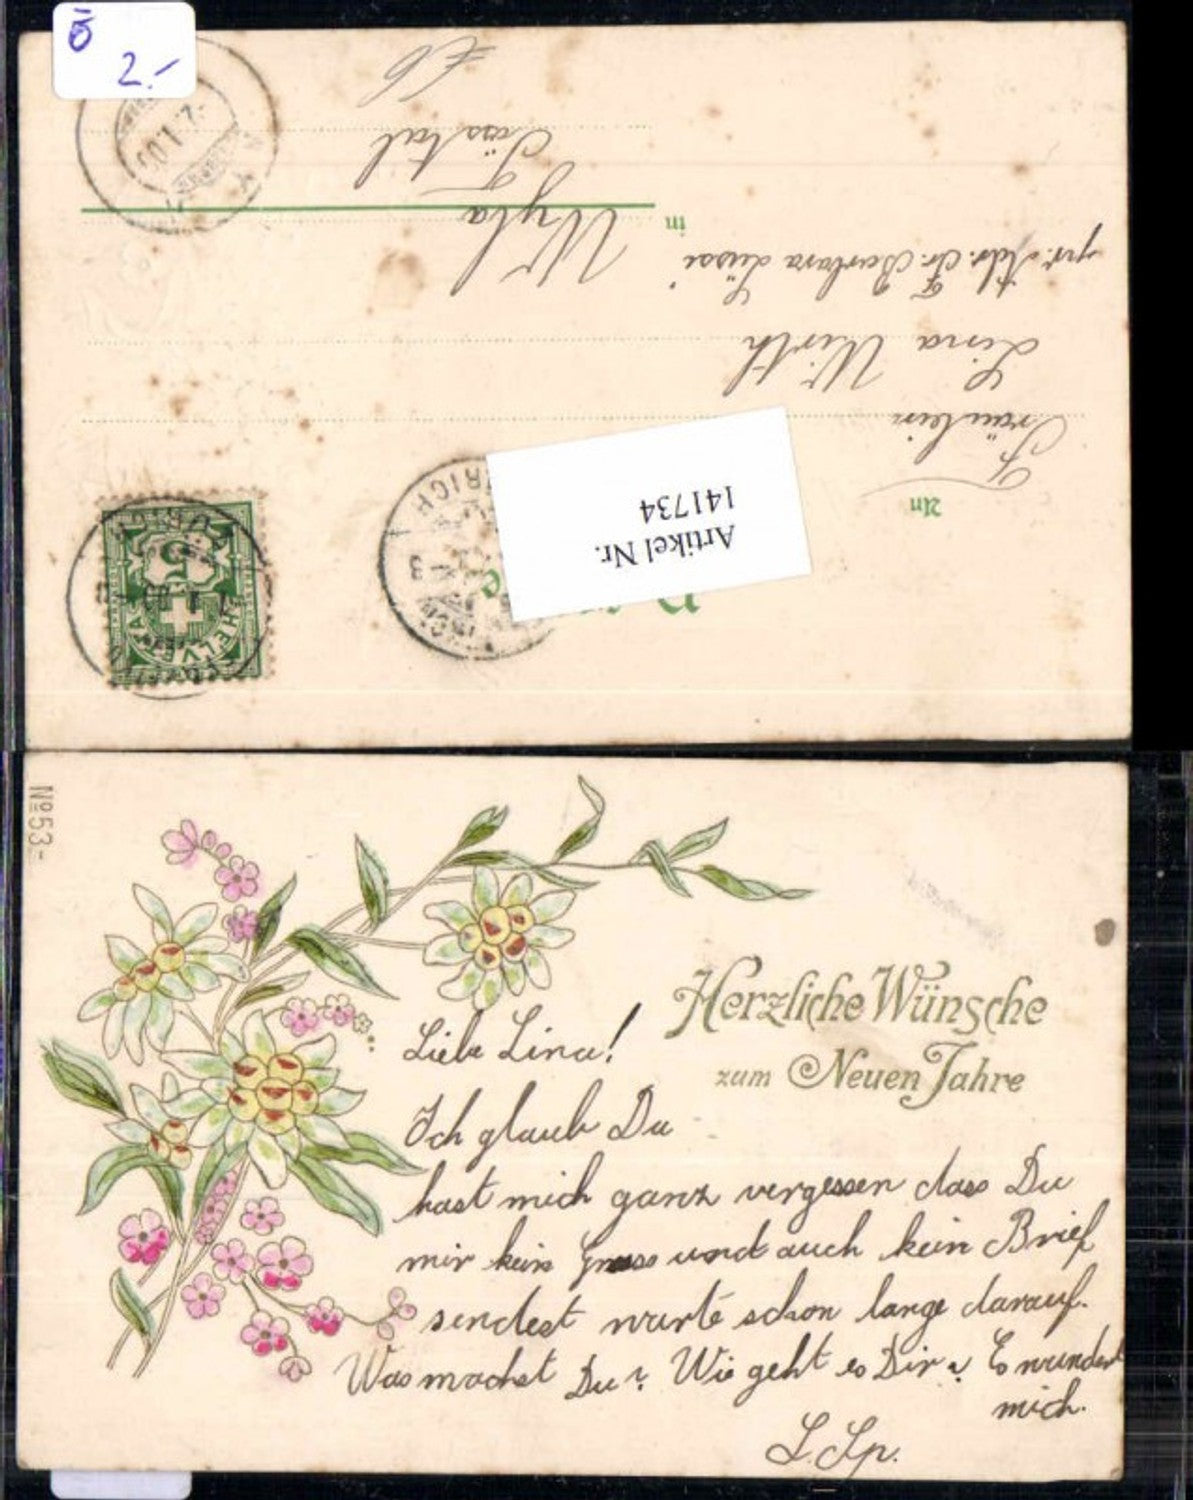 ō
2.-
Artikel Nr.
141734
An
Fräulein
Lina Wirth
pr. Adr. Fr. Barbara
in
Wyla
Tösstal
ZÜRICH
HELVETIA
5
No 53-
Herzliche Wünsche
zum Neuen Jahre
Liebe Lina!
Ich glaub Du
hast mich ganz vergessen dass Du
mir kein Gruss und auch kein Brief
sendest warte schon lange darauf.
Was machst Du? Wie geht es Dir? Es wundert
mich.
L. Sp.